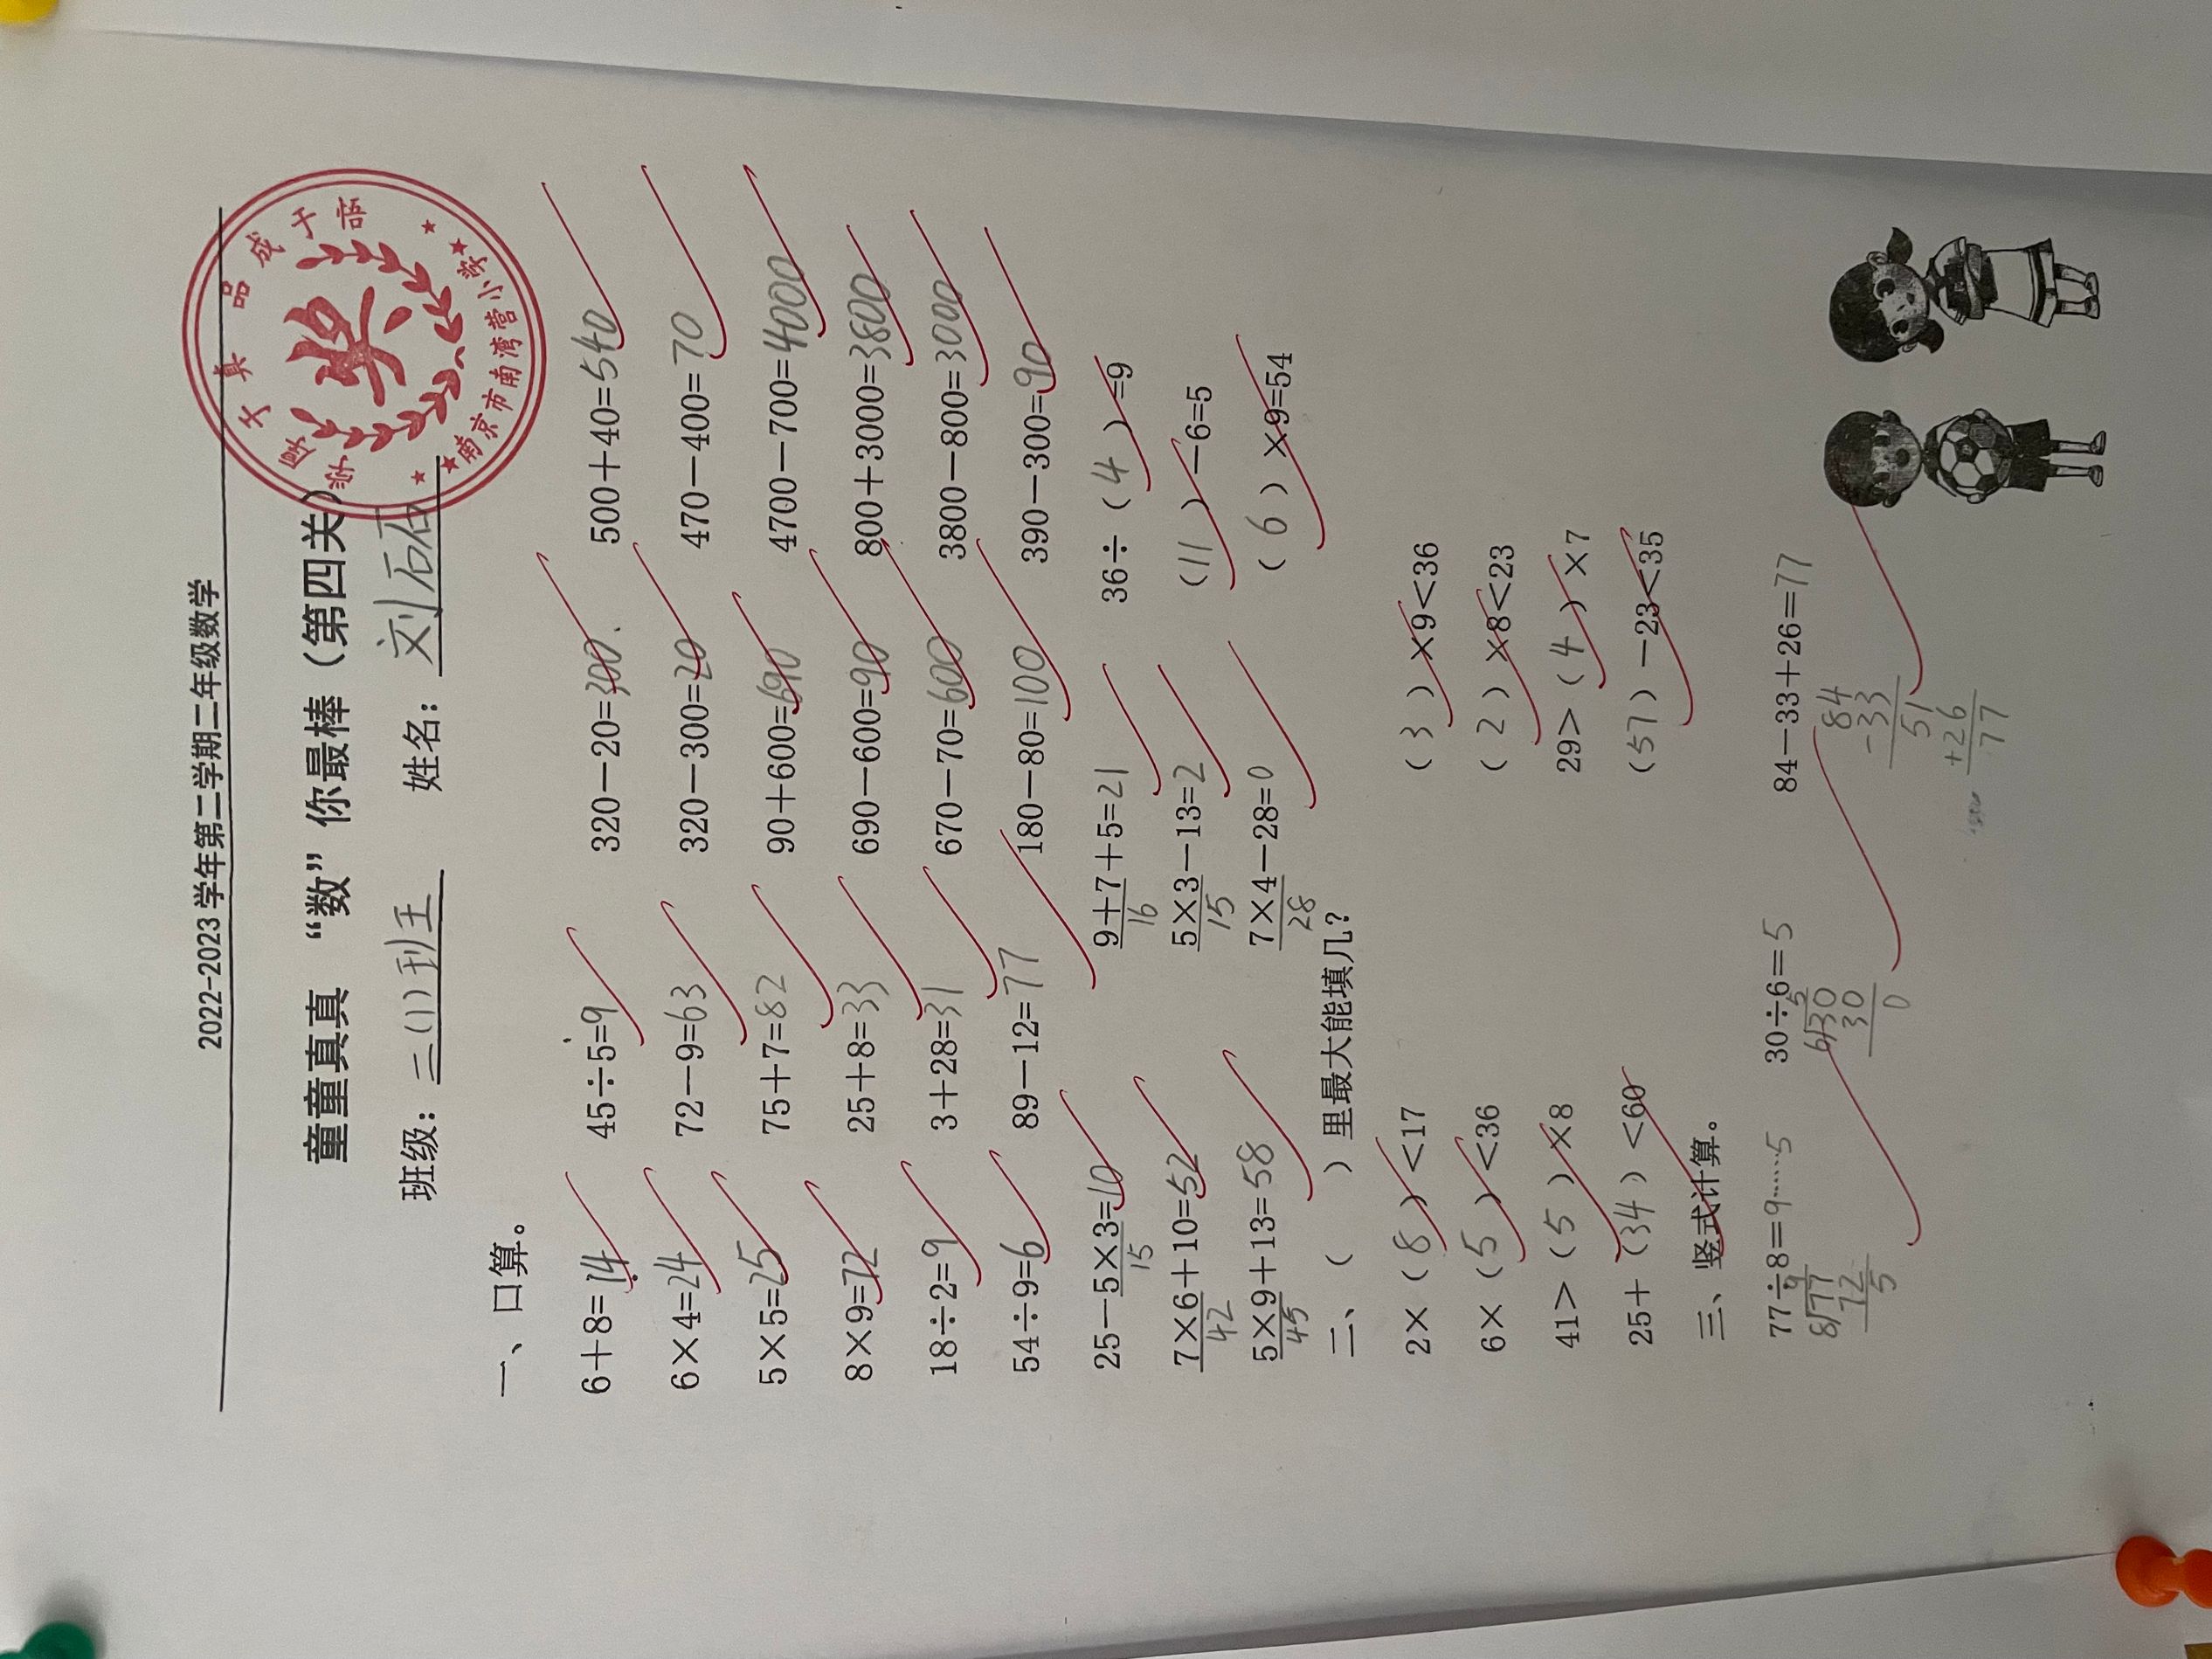 2022-2023 学年第二学期二年级数学
童童真真 “数”你最棒（第四关）
班级：二(1)班 姓名：刘
文真品成于悟
奖
南京市南湾营小学
一、口算。
6＋8=14 45÷5=9 320－20=300 500＋40=540
6×4=24 72－9=63 320－300=20 470－400=70
5×5=25 75＋7=82 90＋600=690 4700－700=4000
8×9=72 25＋8=33 690－600=90 800＋3000=3800
18÷2=9 3＋28=31 670－70=600 3800－800=3000
54÷9=6 89－12=77 180－80=100 390－300=90
25－5×3=10 9＋7＋5=21 36÷（4）=9
15 16
7×6＋10=52 5×3－13=2 （11）－6=5
42 15
5×9＋13=58 7×4－28=0 （6）×9=54
45 28
二、（ ）里最大能填几？
2×（8）＜17 （3）×9＜36
6×（5）＜36 （2）×8＜23
41＞（5）×8 29＞（4）×7
25＋（34）＜60 （57）－23＜35
三、竖式计算。
77÷8=9……5 30÷6=5 84－33＋26=77
9 5 84
8)77 6)30 -33
72 30 51
5 0 +26
77